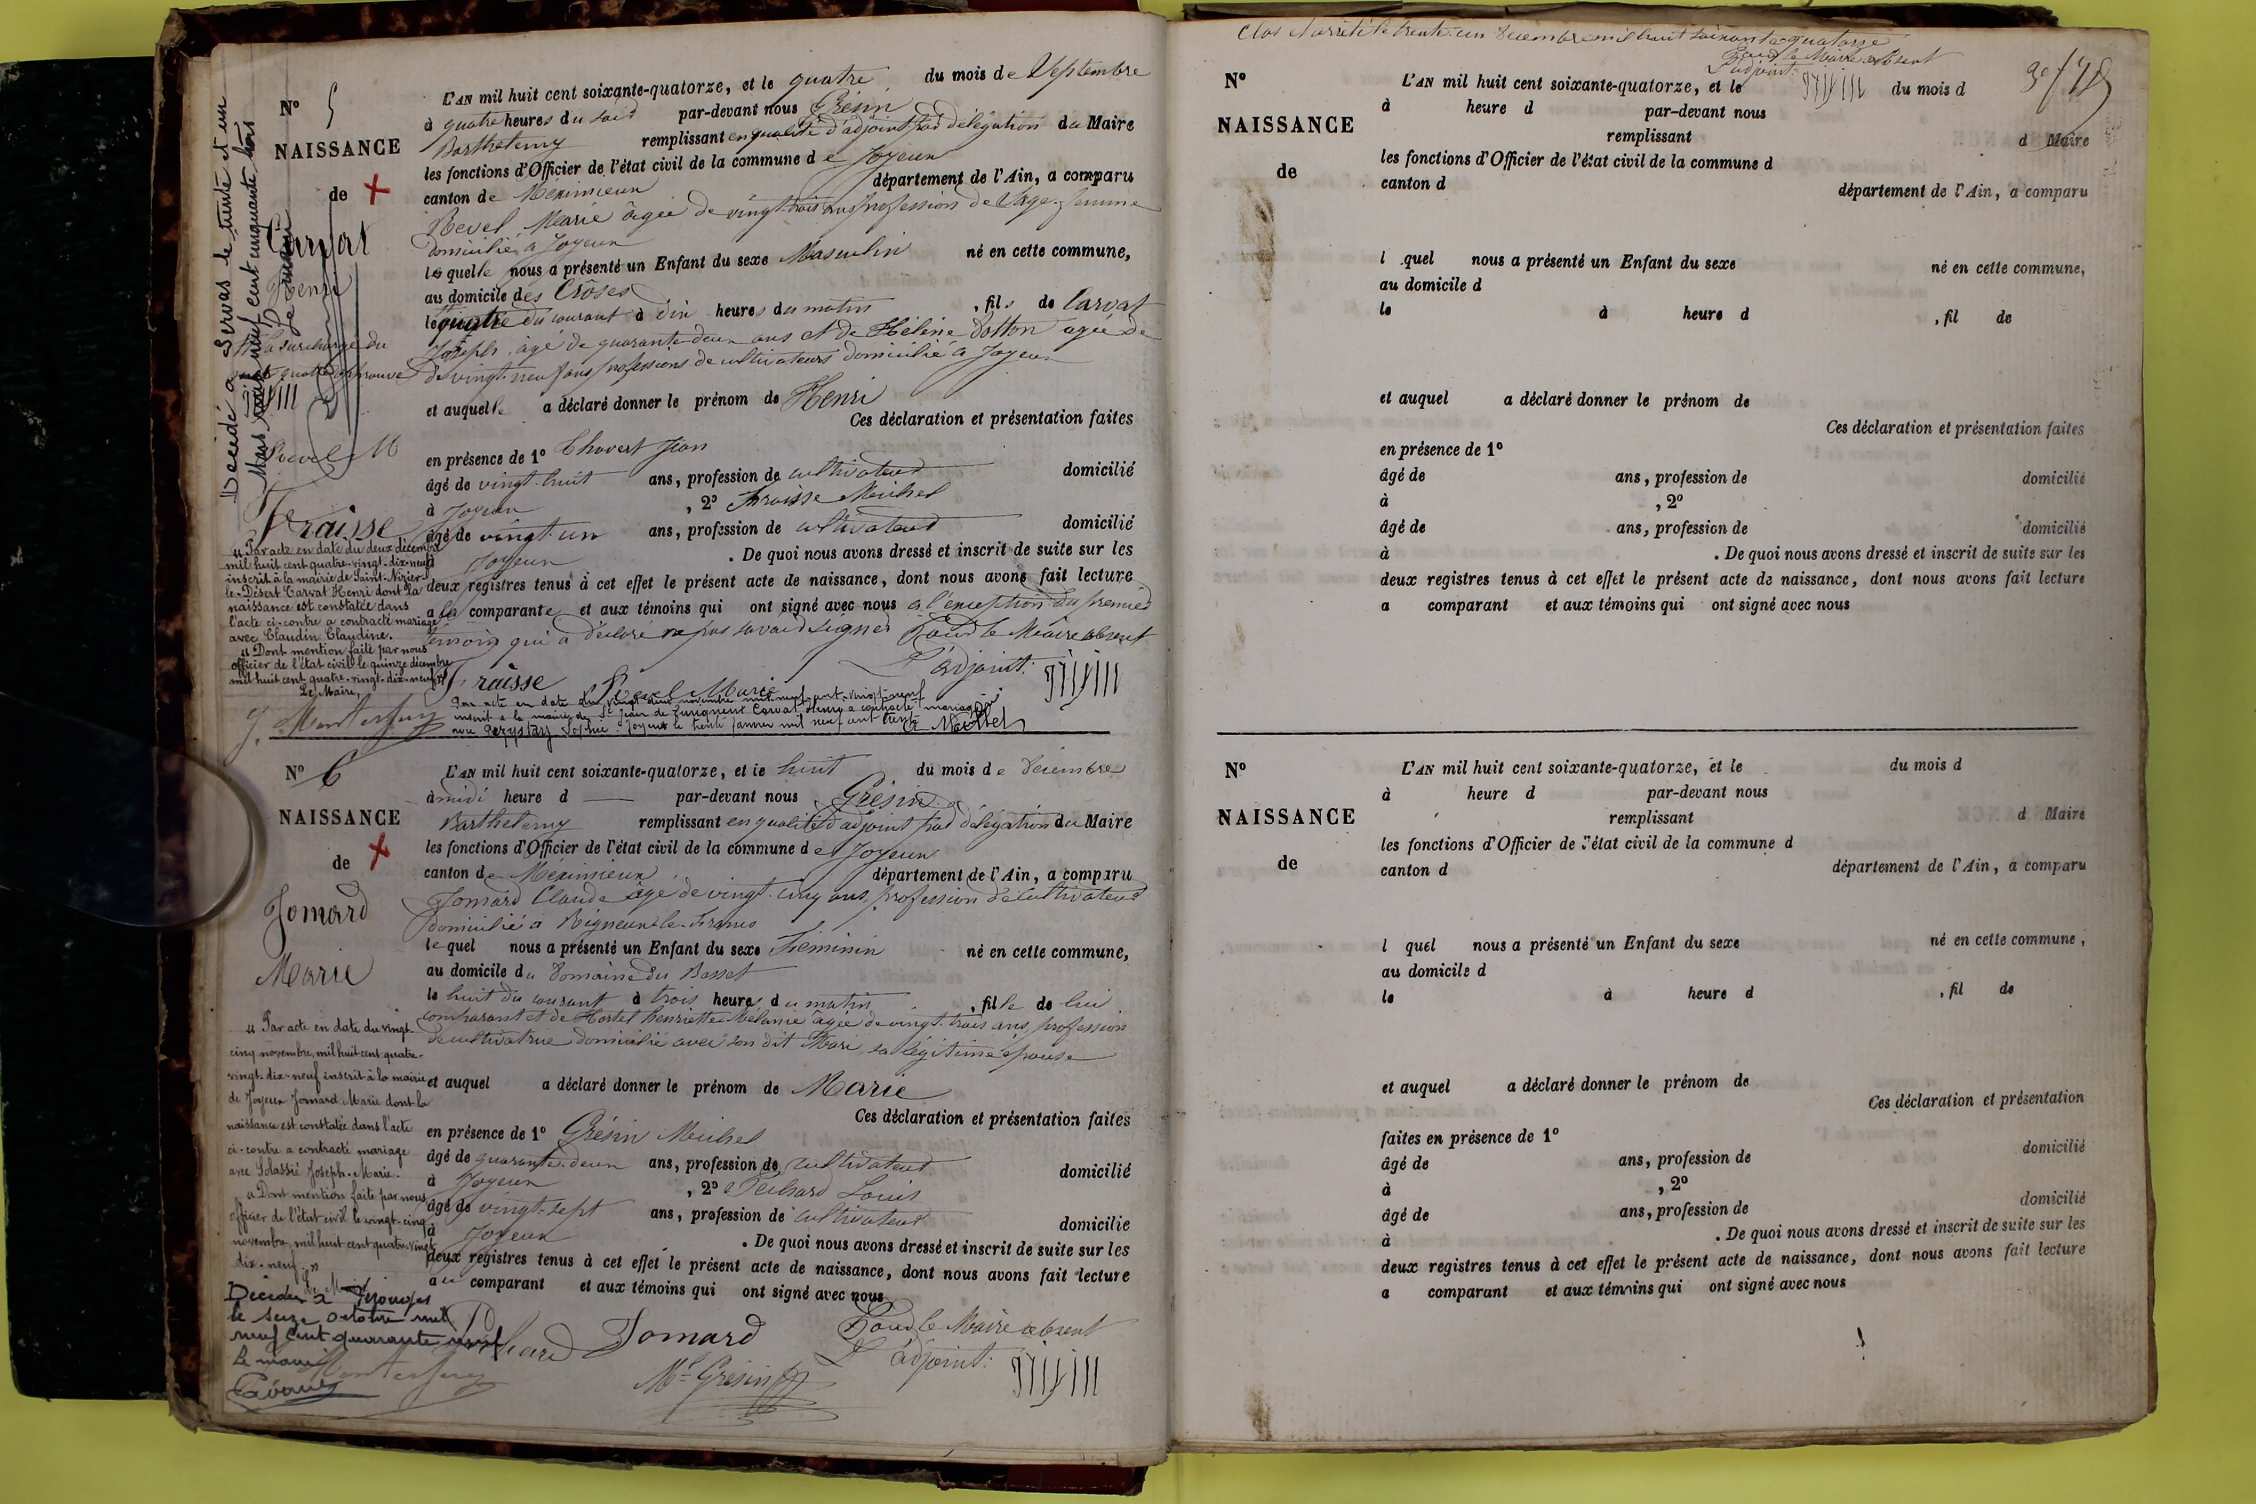 N° 5
NAISSANCE
de
Carvat
Henri
La surcharge du
mot quatre approuvé
Revel M
Fraisse
Décédé a Servas le trente et un
Mars mil neuf cent cinquante trois
L'AN mil huit cent soixante-quatorze, et le quatre du mois de Septembre
à quatre heures du soir par-devant nous Grésin
Barthelemy remplissant en qualité d'adjoint par délégation du Maire
les fonctions d'Officier de l'état civil de la commune de Joyeux
canton de Méximieux département de l'Ain, a comparu
Revel Marie âgée de vingt trois ans profession de Sage-femme
domiciliée à Joyeux
laquelle nous a présenté un Enfant du sexe Masculin né en cette commune,
au domicile des Crôses
le quatre du courant à dix heures du matin , fils de Carvat
Joseph, âgé de quarante-deux ans et de Hélène Dotton âgée de
de vingt-neuf ans professions de cultivateurs domicilié à Joyeux
et auquel le a déclaré donner le prénom de Henri
Ces déclaration et présentation faites
en présence de 1° Chavert Jean
âgé de vingt-huit ans, profession de cultivateur domicilié
à Joyeux , 2° Fraisse Michel
âgé de vingt-un ans, profession de cultivateur domicilié
Joyeux . De quoi nous avons dressé et inscrit de suite sur les
deux registres tenus à cet effet le présent acte de naissance, dont nous avons fait lecture
a la comparante et aux témoins qui ont signé avec nous a l'exception du premier
témoin qui a déclaré ne pas savoir signer Pour le Maire absent
L'adjoint:
Fraisse Revel Marie
" Par acte en date du deux décembre
mil huit cent quatre-vingt-dix-neuf
inscrit à la mairie de Saint-Nizier-
le-Désert Carvat Henri dont la
naissance est constatée dans
l'acte ci-contre a contracté mariage
avec Claudin Claudine.
" Dont mention faite par nous
officier de l'état civil le quinze décembre
mil huit cent quatre-vingt-dix-neuf
Le Maire,
Par acte en date du vingt deux novembre mil neuf cent vingt neuf
inscrit a la mairie de St Jean de Carvat Henri a contracté mariage
avec Sophie. Joyeux le trente janvier mil neuf cent trente
N° 6
NAISSANCE
de
Jomard
Marie
L'AN mil huit cent soixante-quatorze, et le huit du mois de décembre
à midi heure d par-devant nous Grésin
Barthelemy remplissant en qualité d'adjoint par délégation du Maire
les fonctions d'Officier de l'état civil de la commune de Joyeux
canton de Méximieux département de l'Ain, a comparu
Jomard Claude âgé de vingt-cinq ans, profession de cultivateur
domicilié à Rigneux-le-Franc
lequel nous a présenté un Enfant du sexe Féminin né en cette commune,
au domicile du Domaine du Basset
le huit du courant à trois heures du matin , fille de lui
comparant et de Hortel Henriette Mélanie âgée de vingt-trois ans, profession
de cultivatrice domicilié avec son dit Mari, sa légitime épouse
et auquel a déclaré donner le prénom de Marie
Ces déclaration et présentation faites
en présence de 1° Grésin Michel
âgé de quarante-deux ans, profession de cultivateur domicilié
à Joyeux , 2° Pechard Louis
âgé de vingt-sept ans, profession de cultivateur domicilié
à Joyeux . De quoi nous avons dressé et inscrit de suite sur les
deux registres tenus à cet effet le présent acte de naissance, dont nous avons fait lecture
au comparant et aux témoins qui ont signé avec nous
Pour le Maire absent
L'adjoint:
Jomard
Mel Grésin
" Par acte en date du vingt-
cinq novembre, mil huit cent quatre-
vingt-dix-neuf inscrit à la mairie
de Joyeux Jomard Marie dont la
naissance est constatée dans l'acte
ci-contre a contracté mariage
avec Joseph-Marie.
" Dont mention faite par nous,
officier de l'état civil le vingt-cinq
novembre, mil huit cent quatre-vingt
dix-neuf. "
Décédée à Pérouges
le seize octobre mil
neuf cent quarante neuf
Le maire
Clos et arrêté le trente-un décembre mil huit soixante-quatorze
Pour le Maire absent
L'adjoint:
N°
NAISSANCE
de
L'AN mil huit cent soixante-quatorze, et le du mois d
à heure d par-devant nous
remplissant d Maire
les fonctions d'Officier de l'état civil de la commune d
canton d département de l'Ain, a comparu
l quel nous a présenté un Enfant du sexe né en cette commune,
au domicile d
le à heure d , fil de
et auquel a déclaré donner le prénom de
Ces déclaration et présentation faites
en présence de 1°
âgé de ans, profession de domicilié
à , 2°
âgé de ans, profession de domicilié
à . De quoi nous avons dressé et inscrit de suite sur les
deux registres tenus à cet effet le présent acte de naissance, dont nous avons fait lecture
a comparant et aux témoins qui ont signé avec nous
N°
NAISSANCE
de
L'AN mil huit cent soixante-quatorze, et le du mois d
à heure d par-devant nous
remplissant d Maire
les fonctions d'Officier de l'état civil de la commune d
canton d département de l'Ain, a comparu
l quel nous a présenté un Enfant du sexe né en cette commune,
au domicile d
le à heure d , fil de
et auquel a déclaré donner le prénom de
Ces déclaration et présentation
faites en présence de 1°
âgé de ans, profession de domicilié
à , 2°
âgé de ans, profession de domicilié
à . De quoi nous avons dressé et inscrit de suite sur les
deux registres tenus à cet effet le présent acte de naissance, dont nous avons fait lecture
a comparant et aux témoins qui ont signé avec nous